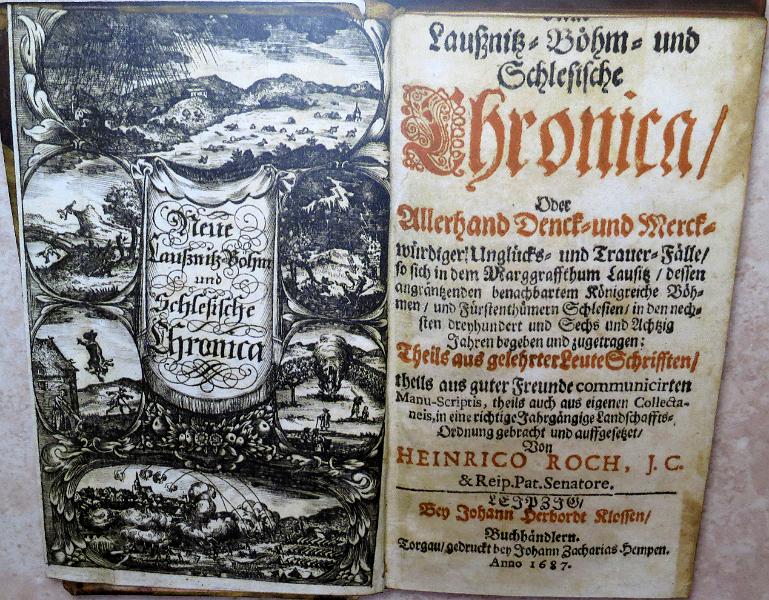 Neue
Laußnitz-Böhm
und
Schlesische
Chronica
Laußnitz- Böhm- und
Schlesische
Chronica/
Oder
Allerhand Denck- und Merck-
würdiger/Unglücks- und Trauer-Fälle/
so sich in dem Marggraffthum Lausitz / dessen
angräntzenden benachbartem Königreiche Böh-
men / und Fürstenthümern Schlesien / in den nech-
sten dreyhundert und Sechs und Achtzig
Jahren begeben und zugetragen:
Theils aus gelehrter Leute Schrifften/
theils aus guter Freunde communicirten
Manu-Scriptis, theils auch aus eigenen Collecta-
neis, in eine richtige Jahrgängige Landschaffts-
Ordnung gebracht und auffgesetzet/
Von
HEINRICO ROCH, J. C.
& Reip. Pat. Senatore.
LEJPZJG/
Bey Johann Herbordt Klossen/
Buchhändlern.
Torgau/ gedruckt bey Johann Zacharias Hempen.
Anno 1687.